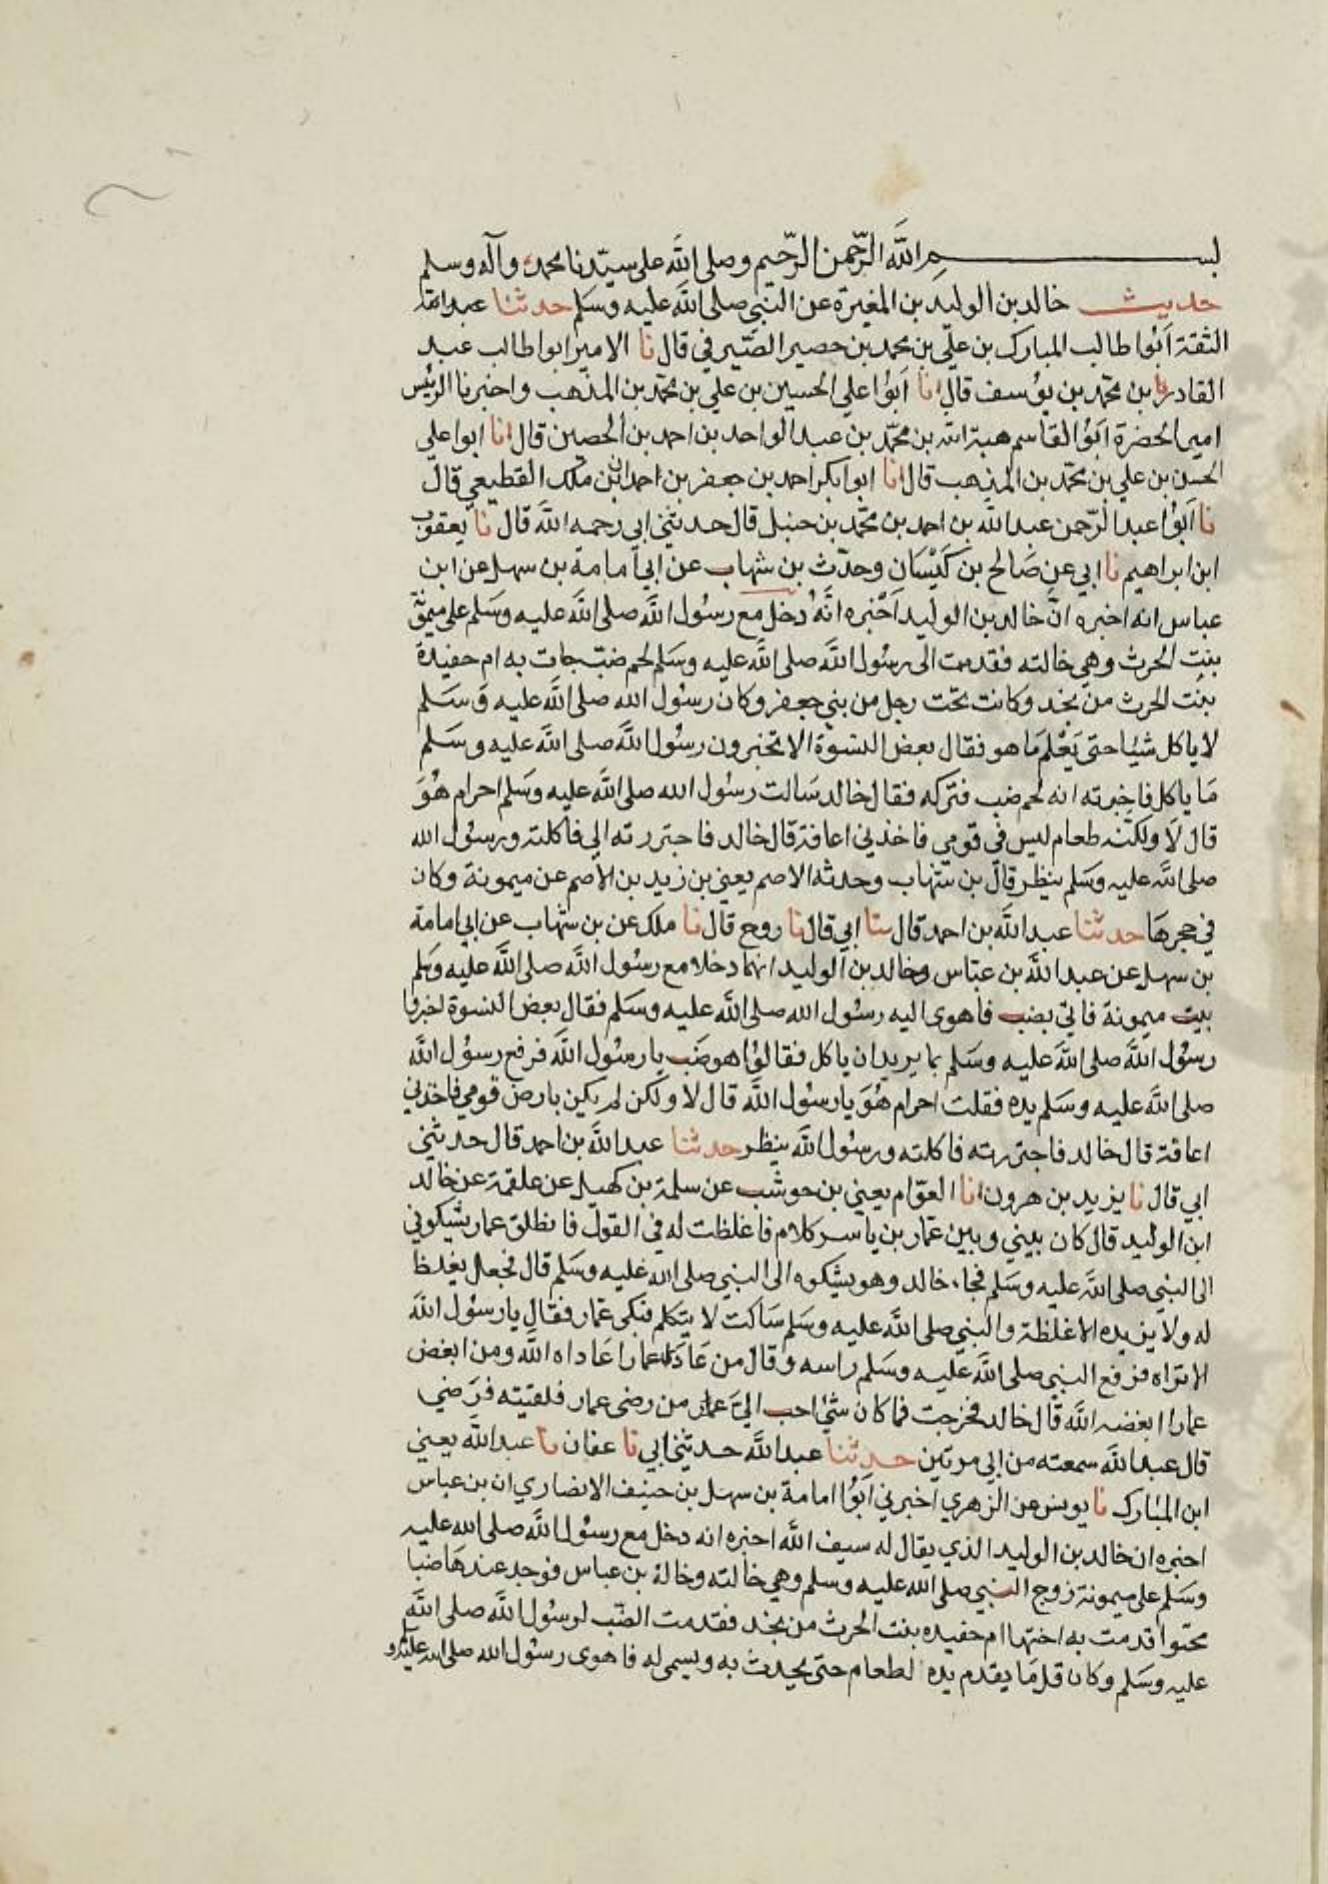 بسم الله الرّحمن الرّحيم وصلى الله على سيّدنا محمد وآله وسلم
حديث خالد بن الوليد بن المغيرة عن النبي صلى الله عليه وسلم حدثنا عبد الله
الثقة ابوا طالب المبارك بن علي بن محمد بن حصير الصيرفي قال نا الامير ابوا طالب عبد
القادر بن محمد بن يوسف قال انا ابوا علي الحسين بن علي بن محمد بن المذهب واخبرنا الرئيس
امير الحضرة ابو القاسم هبة الله بن محمد بن عبد الواحد بن احمد بن الحصين قال انا ابوا علي
الحسن بن علي بن محمد بن المذهب قال انا ابوا بكر احمد بن جعفر بن احمدان بن ملك القطيعي قال
نا ابوا عبد الرحمن عبد الله بن احمد بن محمد بن حنبل قال حدثني ابي رحمه الله قال نا يعقوب
ابن ابراهيم نا ابي عن صالح بن كيسان وحدث بن شهاب عن ابي امامة بن سهل عن ابن
عباس انه اخبره ان خالد بن الوليد اخبره انه دخل مع رسول الله صلى الله عليه وسلم على ميمونة
بنت الحرث وهي خالته فقدمت الى رسول الله صلى الله عليه وسلم لحم ضب جات به ام حفيدة
بنت الحرث من نجد وكانت تحت رجل من بني جعفر وكان رسول الله صلى الله عليه وسلم
لا ياكل شيا حتى يعلم ما هو فقال بعض النسوة الا تخبرون رسول الله صلى الله عليه وسلم
ما ياكل فاخبرته انه لحم ضب فتركه فقال خالد سالت رسول الله صلى الله عليه وسلم احرام هو
قال لا ولكنه طعام ليس في قومي فاخذني اعافة قال خالد فاجتررته الي فاكلته ورسول الله
صلى الله عليه وسلم ينظر قال بن شهاب وحدثه الاصم يعني بن زيد بن الاصم عن ميمونة وكان
في حجرها حدثنا عبد الله بن احمد قال ثنا ابي قال نا روح قال نا ملك عن بن شهاب عن ابي امامة
بن سهل عن عبد الله بن عباس وخالد بن الوليد انهما دخلا مع رسول الله صلى الله عليه وسلم
بيت ميمونة فاتي بضب فاهوى اليه رسول الله صلى الله عليه وسلم فقال بعض النسوة اخبروا
رسول الله صلى الله عليه وسلم بما يريد ان ياكل فقالوا هو ضب يا رسول الله فرفع رسول الله
صلى الله عليه وسلم يده فقلت احرام هو يا رسول الله قال لا ولكن لم يكن بارض قومي فاخذني
اعافة قال خالد فاجتررته فاكلته ورسول الله ينظر حدثنا عبد الله بن احمد قال حدثني
ابي قال نا يزيد بن هرون انا العوام يعني بن حوشب عن سلمة بن كهيل عن علقمة عن خالد
ابن الوليد قال كان بيني وبين عمار بن ياسر كلام فاغلظت له في القول فانطلق عمار يشكوني
الى النبي صلى الله عليه وسلم فجاء خالد وهو يشكوه الى النبي صلى الله عليه وسلم قال فجعل يغلظ
له ولا يزيده الا غلظة والنبي صلى الله عليه وسلم ساكت لا يتكلم فبكى عمار فقال يا رسول الله
الا تراه فرفع النبي صلى الله عليه وسلم راسه وقال من عادا عمارا عاداه الله ومن ابغض
عمارا ابغضه الله قال خالد فخرجت فما كان شئ احب الي من رضى عمار فلقيته فرضي
قال عبد الله سمعته من ابي مرتين حدثنا عبد الله حدثني ابي نا عفان نا عبد الله يعني
ابن المبارك نا يونس عن الزهري اخبرني ابوا امامة بن سهل بن حنيف الانصاري ان بن عباس
اخبره ان خالد بن الوليد الذي يقال له سيف الله اخبره انه دخل مع رسول الله صلى الله عليه
وسلم على ميمونة زوج النبي صلى الله عليه وسلم وهي خالته وخالة بن عباس فوجد عندها ضبا
محنوا قدمت به اختها ام حفيده بنت الحرث من نجد فقدمت الضب لرسول الله صلى الله
عليه وسلم وكان قل ما يقدم يده لطعام حتى يحدث به ويسمى له فاهوى رسول الله صلى الله عليه و